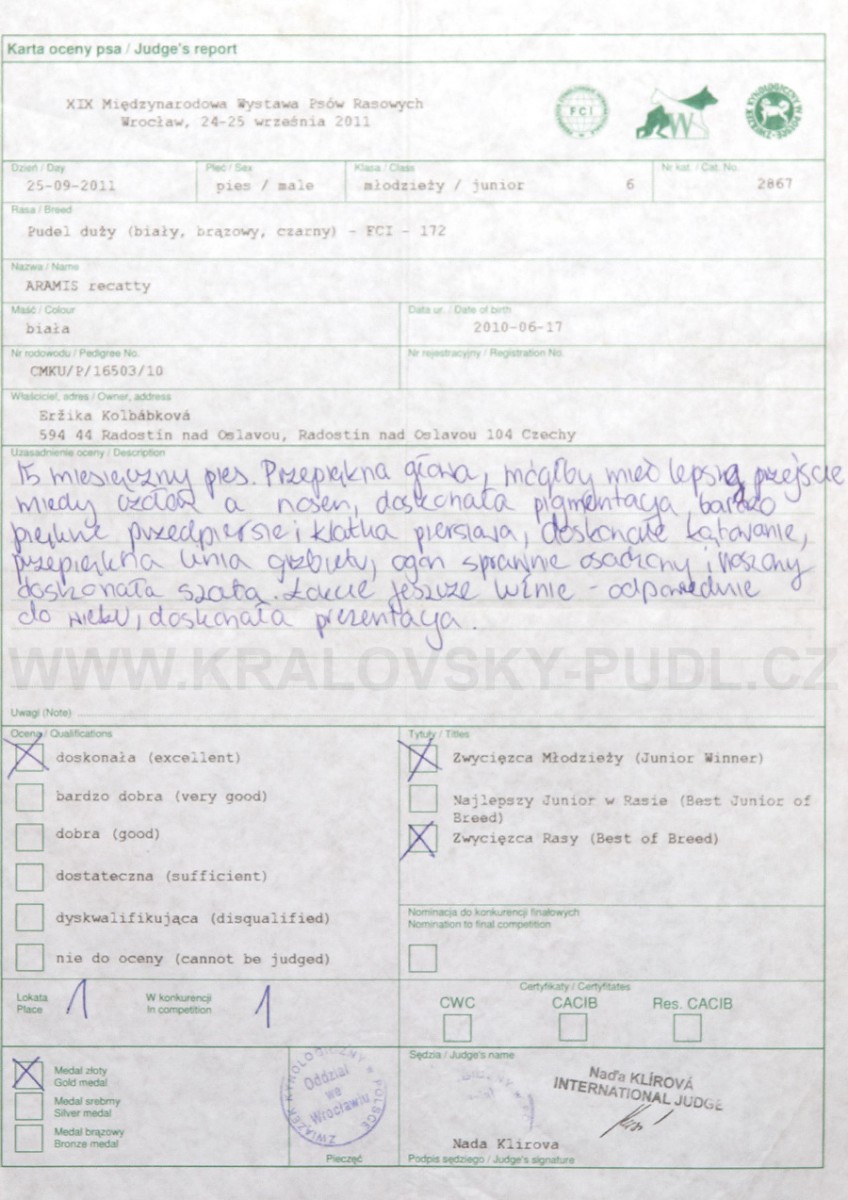 Karta oceny psa / Judge's report
XIX Międzynarodowa Wystawa Psów Rasowych
Wrocław, 24-25 września 2011
FCI
W
ZWIĄZEK KYNOLOGICZNY W POLSCE
Dzień / Day
Płeć / Sex
Klasa / Class
Nr kat. / Cat. No.
25-09-2011
pies / male
młodzieży / junior
6
2867
Rasa / Breed
Pudel duży (biały, brązowy, czarny) - FCI - 172
Nazwa / Name
ARAMIS recatty
Maść / Colour
Data ur. / Date of birth
biała
2010-06-17
Nr rodowodu / Pedigree No.
Nr rejestracyjny / Registration No.
CMKU/P/16503/10
Właściciel, adres / Owner, address
Eržika Kolbábková
594 44 Radostín nad Oslavou, Radostín nad Oslavou 104 Czechy
Uzasadnienie oceny / Description
15 miesięczny pies. Przepiękna głowa, mógłby mieć lepsze przejście
miedy czołem a nosem, doskonała pigmentacja, bardzo
piękne przedpiersie i klatka piersiowa, doskonałe kątowanie,
przepiękna linia grzbietu, ogon sprawnie osadzony i noszony
doskonała szata. Łokcie jeszcze luźnie - odpowiednie
do wieku, doskonała prezentacja.
WWW.KRALOVSKY-PUDL.CZ
Uwagi (Note)
Ocena / Qualifications
Tytuły / Titles
doskonała (excellent)
bardzo dobra (very good)
dobra (good)
dostateczna (sufficient)
dyskwalifikująca (disqualified)
nie do oceny (cannot be judged)
Zwycięzca Młodzieży (Junior Winner)
Najlepszy Junior w Rasie (Best Junior of
Breed)
Zwycięzca Rasy (Best of Breed)
Nominacja do konkurencji finałowych
Nomination to final competition
Lokata
Place
1
W konkurencji
In competition
1
Certyfikaty / Certyfitates
CWC
CACIB
Res. CACIB
Medal złoty
Gold medal
Medal srebrny
Silver medal
Medal brązowy
Bronze medal
ZWIĄZEK KYNOLOGICZNY W POLSCE
Oddział
we
Wrocławiu
Pieczęć
Sędzia / Judge's name
Naďa KLÍROVÁ
INTERNATIONAL JUDGE
Nada Klirova
Podpis sędziego / Judge's signature